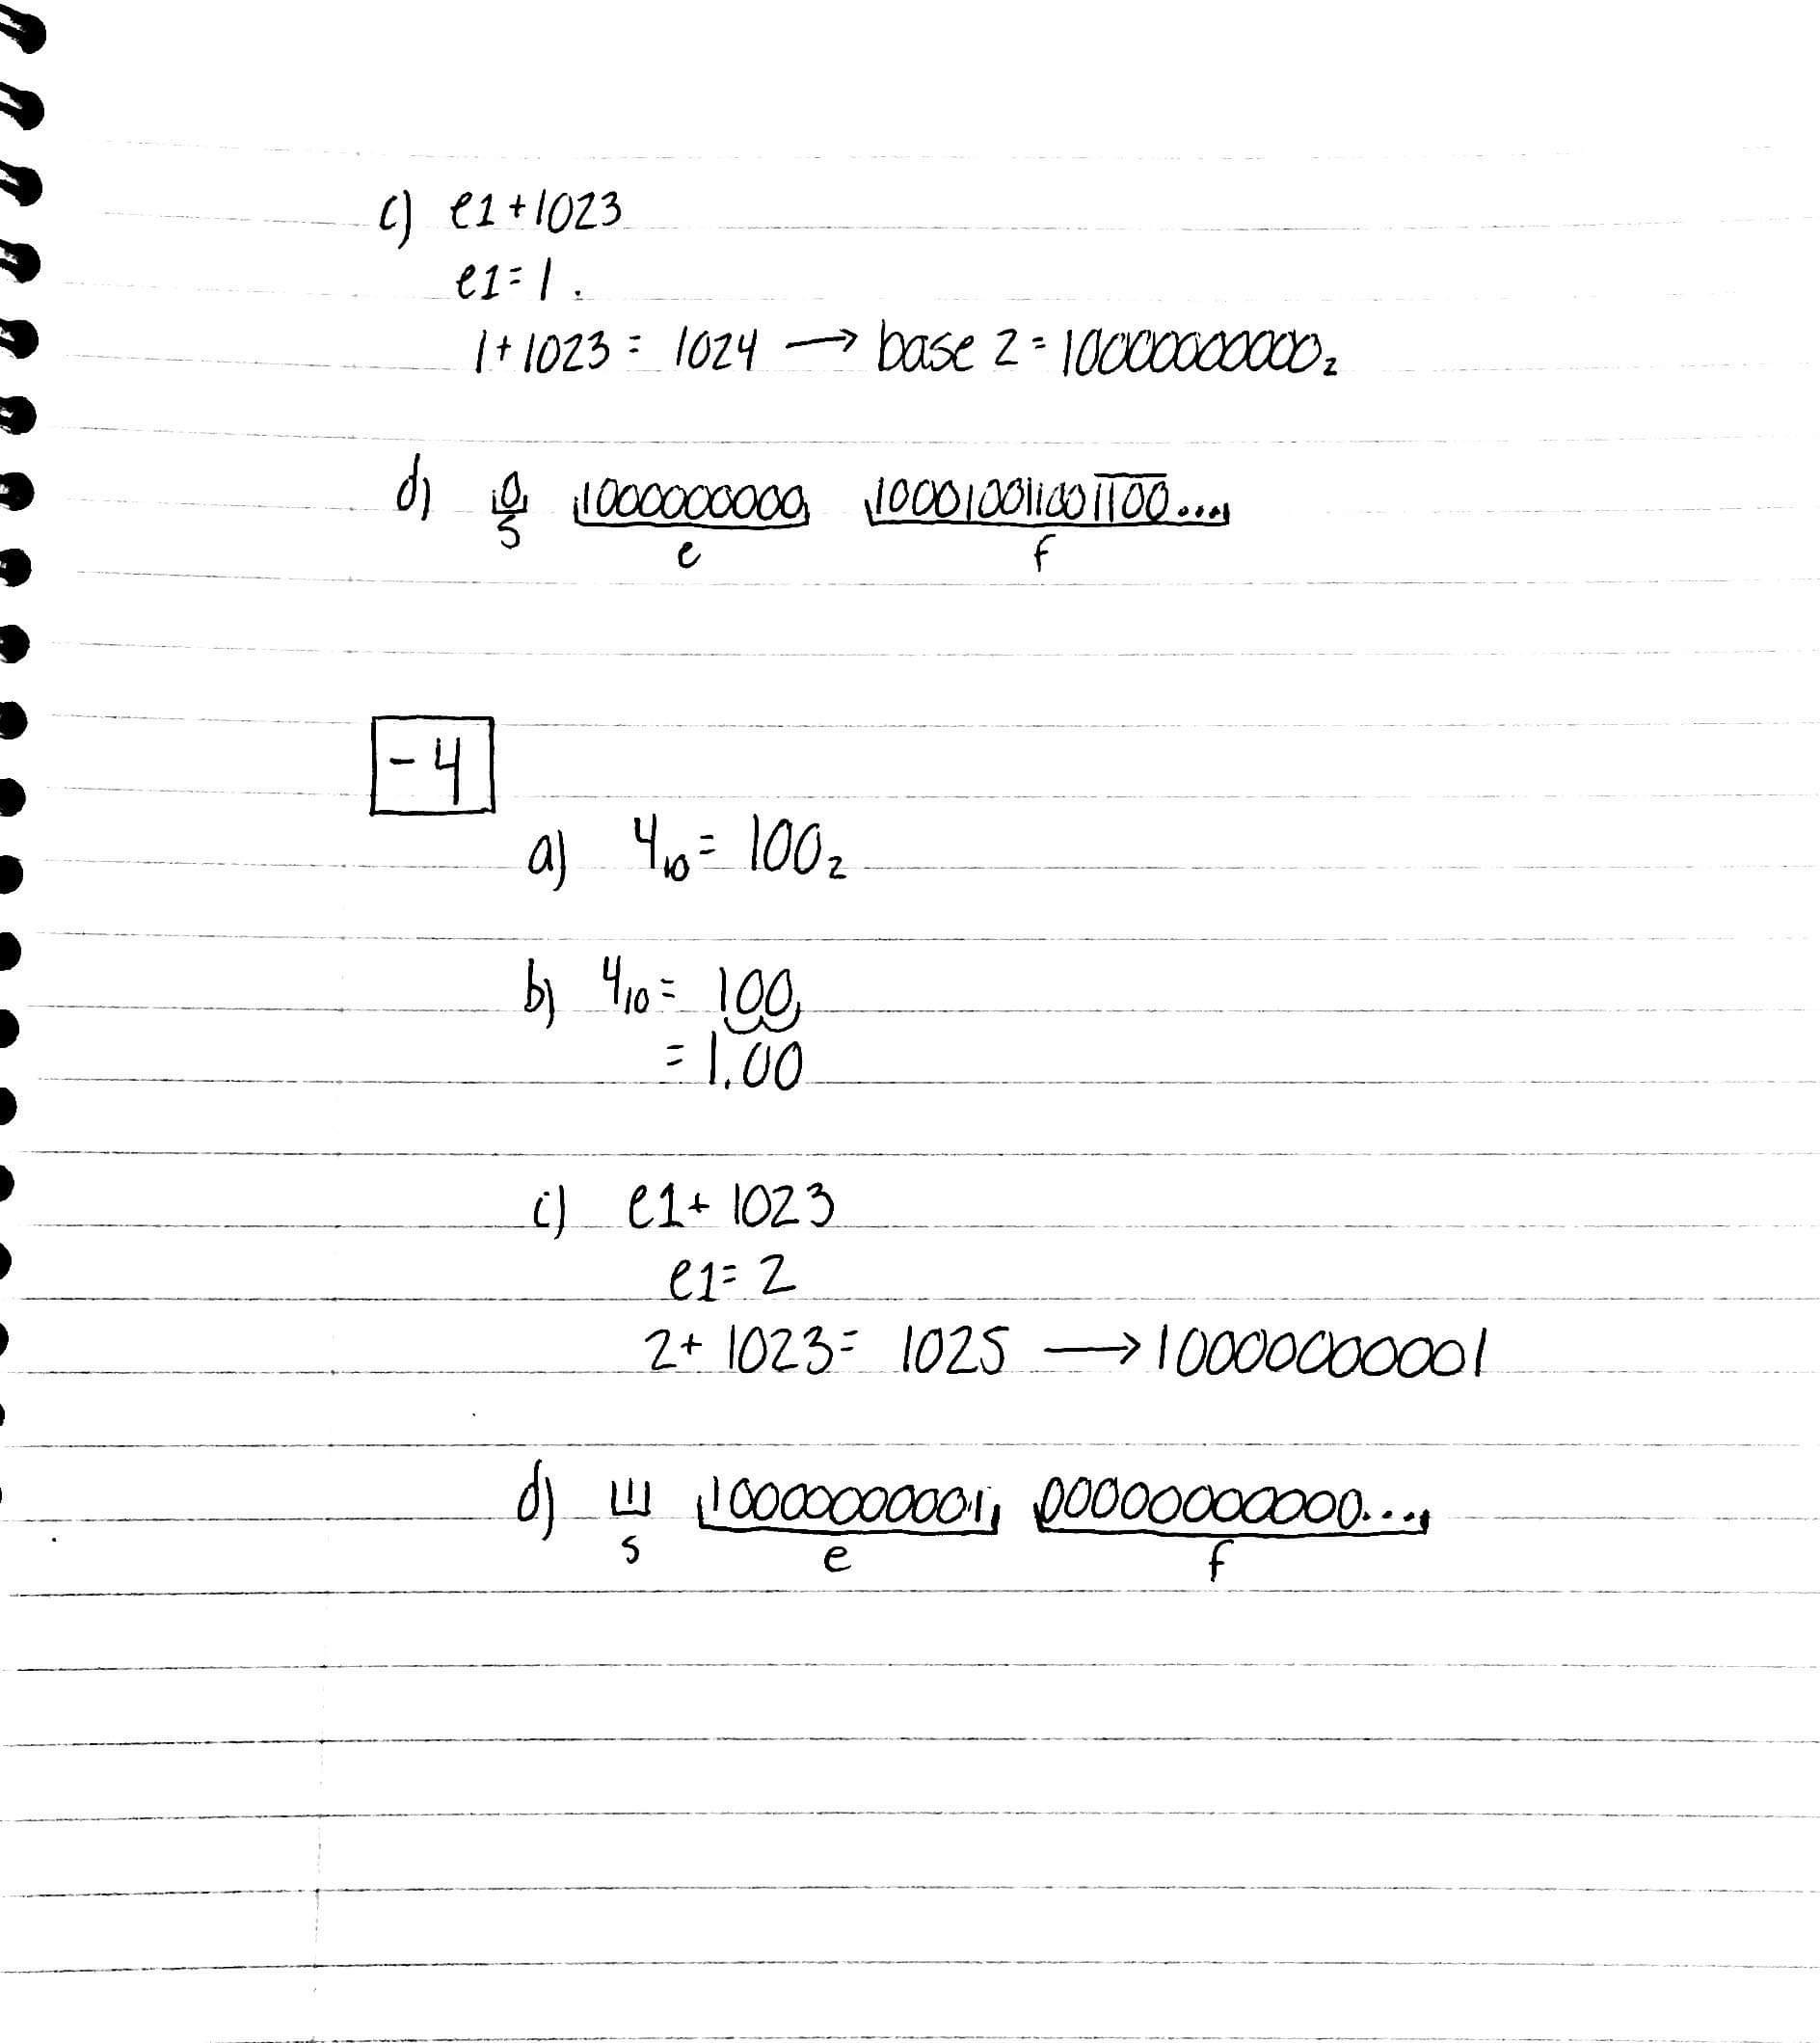 c) e1+1023
e1=1.
1+1023 = 1024 → base 2 = 10000000000₂
d) 0 1000000000 1000100110011100....
s e f
-4
a) 4₁₀ = 100₂
b) 4₁₀ = 100
= 1.00
c) e1+ 1023
e1= 2
2+ 1023= 1025 → 10000000001
d) 1 10000000001 000000000000....
s e f